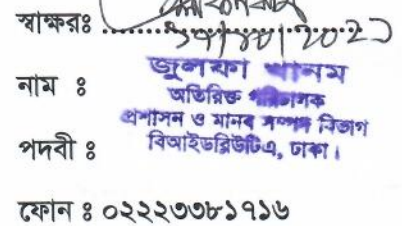 স্বাক্ষরঃ
নাম ঃ জুলফা খানম
অতিরিক্ত পরিচালক
প্রশাসন ও মানব সম্পদ বিভাগ
পদবী ঃ বিআইডব্লিউটিএ, ঢাকা।
ফোন ঃ ০২২২৩৩৮১৭১৬